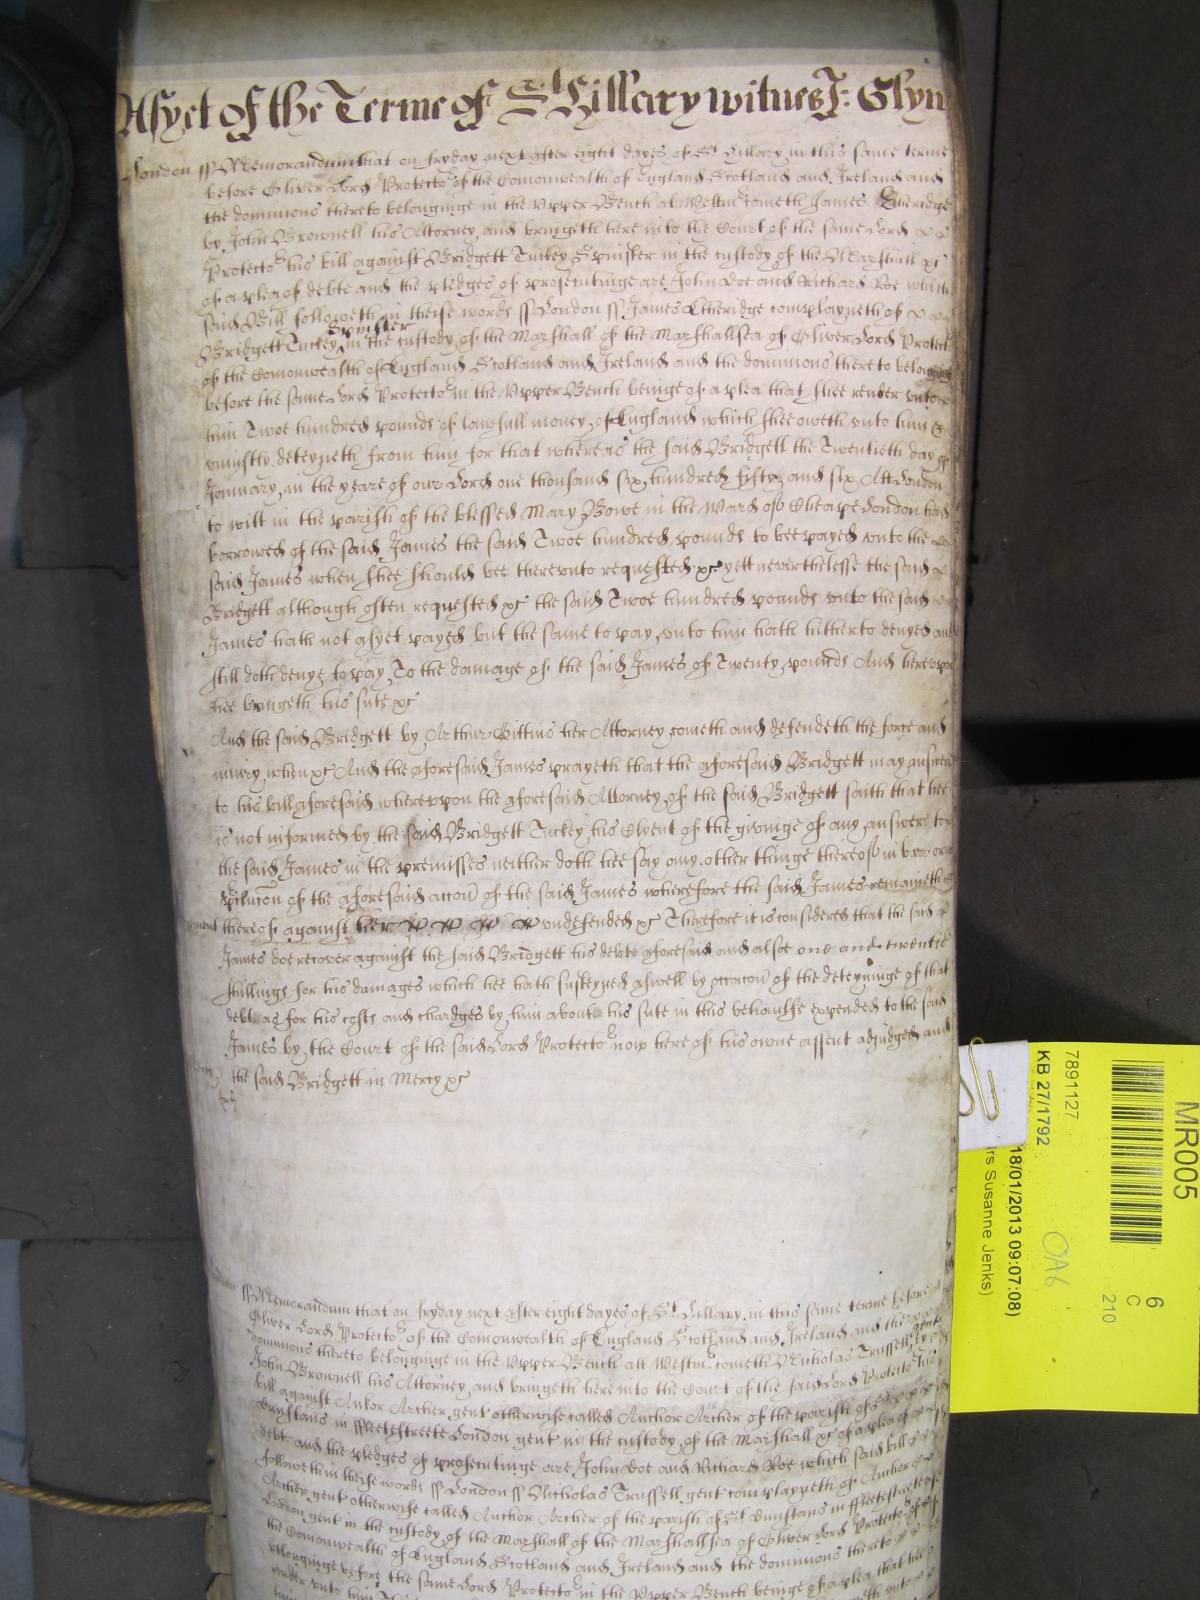 Asyet of the Terme of St Hillary witnes J: Glyn
London ss Memorandum that on fryday next after eight dayes of St Hillary in this same terme
before Oliver Lord Protector of the Comonwealth of England Scotland and Ireland and
the dominions thereto belonginge in the Upper Bench at Westm cometh James Etheridge
by John Brownell his Attorney and bringeth here into the Court of the same Lord
Protector his bill against Bridgett Tuckey Spinster in the custody of the Marshall &c
of a plea of debte and the pledges of prosecutinge are John Doe and Richard Roe which
said Bill followeth in theise words ss London ss James Etheridge complayneth of
Bridgett Tuckey Spinster in the custody of the Marshall of the Marshallsea of Oliver Lord Protector
of the Comonwealth of England Scotland and Ireland and the dominions there to belonginge
before the same Lord Protector in the Upper Bench beinge of a plea that shee render unto
him Twoe hundred pounds of lawfull money of England which shee oweth unto him &
uniustly deteyneth from him for that whereas the said Bridgett the Twentieth day of
January in the yeare of our Lord one thousand six hundred fifty and six Att London
to witt in the parish of the blessed Mary Bowe in the Ward of Cheape London had
borrowed of the said James the said Twoe hundred pounds to bee payed unto the
said James when shee should bee thereunto requested &c yett neverthelesse the said
Bridgett although often requested &c the said Twoe hundred pounds unto the said
James hath not asyet payed but the same to pay unto him hath hitherto denyed and
still doth denye to pay To the damage of the said James of Twenty pounds And hereupon
hee bringeth his sute &c
And the said Bridgett by Arthur Gittins her Attorney cometh and defendeth the force and
iniury when &c And the aforesaid James prayeth that the aforesaid Bridgett may answere
to his bill aforesaid whereupon the aforesaid Attorney of the said Bridgett saith that hee
is not informed by the said Bridgett Tuckey his Clyent of the givinge of any answere to
the said James in the premisses neither doth hee say any other thinge thereof in barr or
of the aforesaid accon of the said James wherefore the said James remaineth
thereof against her undefended &c Therefore it is considered that the said
James doe recover against the said Bridgett his debt aforesaid and alsoe one and twentie
shillings for his damages which hee hath susteyned aswell by occacon of the deteyninge of that
debt as for his costs and chardges by him about his sute in this behaulfe expended to the said
James by the Court of the said Lord Protector now here of his owne assent adjudged and
the said Bridgett in Mercy &c
ss Memorandum that on fryday next after eight dayes of St Hillary in this same terme before
Oliver Lord Protector of the Comonwealth of England Scotland and Ireland and the
dominions thereto belonginge in the Upper Bench att Westmr cometh Nicholas Trussell gent by
John Brownell his Attorney and bringeth here into the Court of the said Lord Protector his
bill against Ankor Archer gent otherwise called Anchor Archer of the parish of St
Dunstans in ffleetestreete London gent in the custody of the Marshall &c of a plea of
debt and the pledges of prosecutinge are John Doe and Richard Roe which said bill
followeth in theise words ss London ss Nicholas Trussell gent complayneth of Anchor
Archer gent otherwise called Anchor Archer of the parish of St Dunstans in ffleetestreete
London gent in the custody of the Marshall of the Marshallsea of Oliver Lord Protector of
the Comonwealth of England Scotland and Ireland and the dominions thereto
belonginge before the same Lord Protector in the Upper Bench beinge of a plea that hee
render unto him
MR005
6
C
210
7891127
KB 27/1792
OA6
18/01/2013 09:07:08)
rs Susanne Jenks)